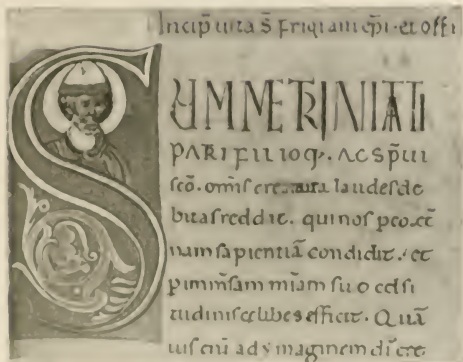 Incip̄ uita S̄ Friqiani ep̄i · et offi
SUMME TRINITATI
PATRI FILIOQ; AC SP̄UI
sc̄o. om̄is creatura laudes de
bitas reddit. qui nos p eoꝝ
nam sapientiā condidit. et
p im̄nsam mīam suo celsi
tudinis celibes efficit. Quā
uis eni ad ymaginem di cre